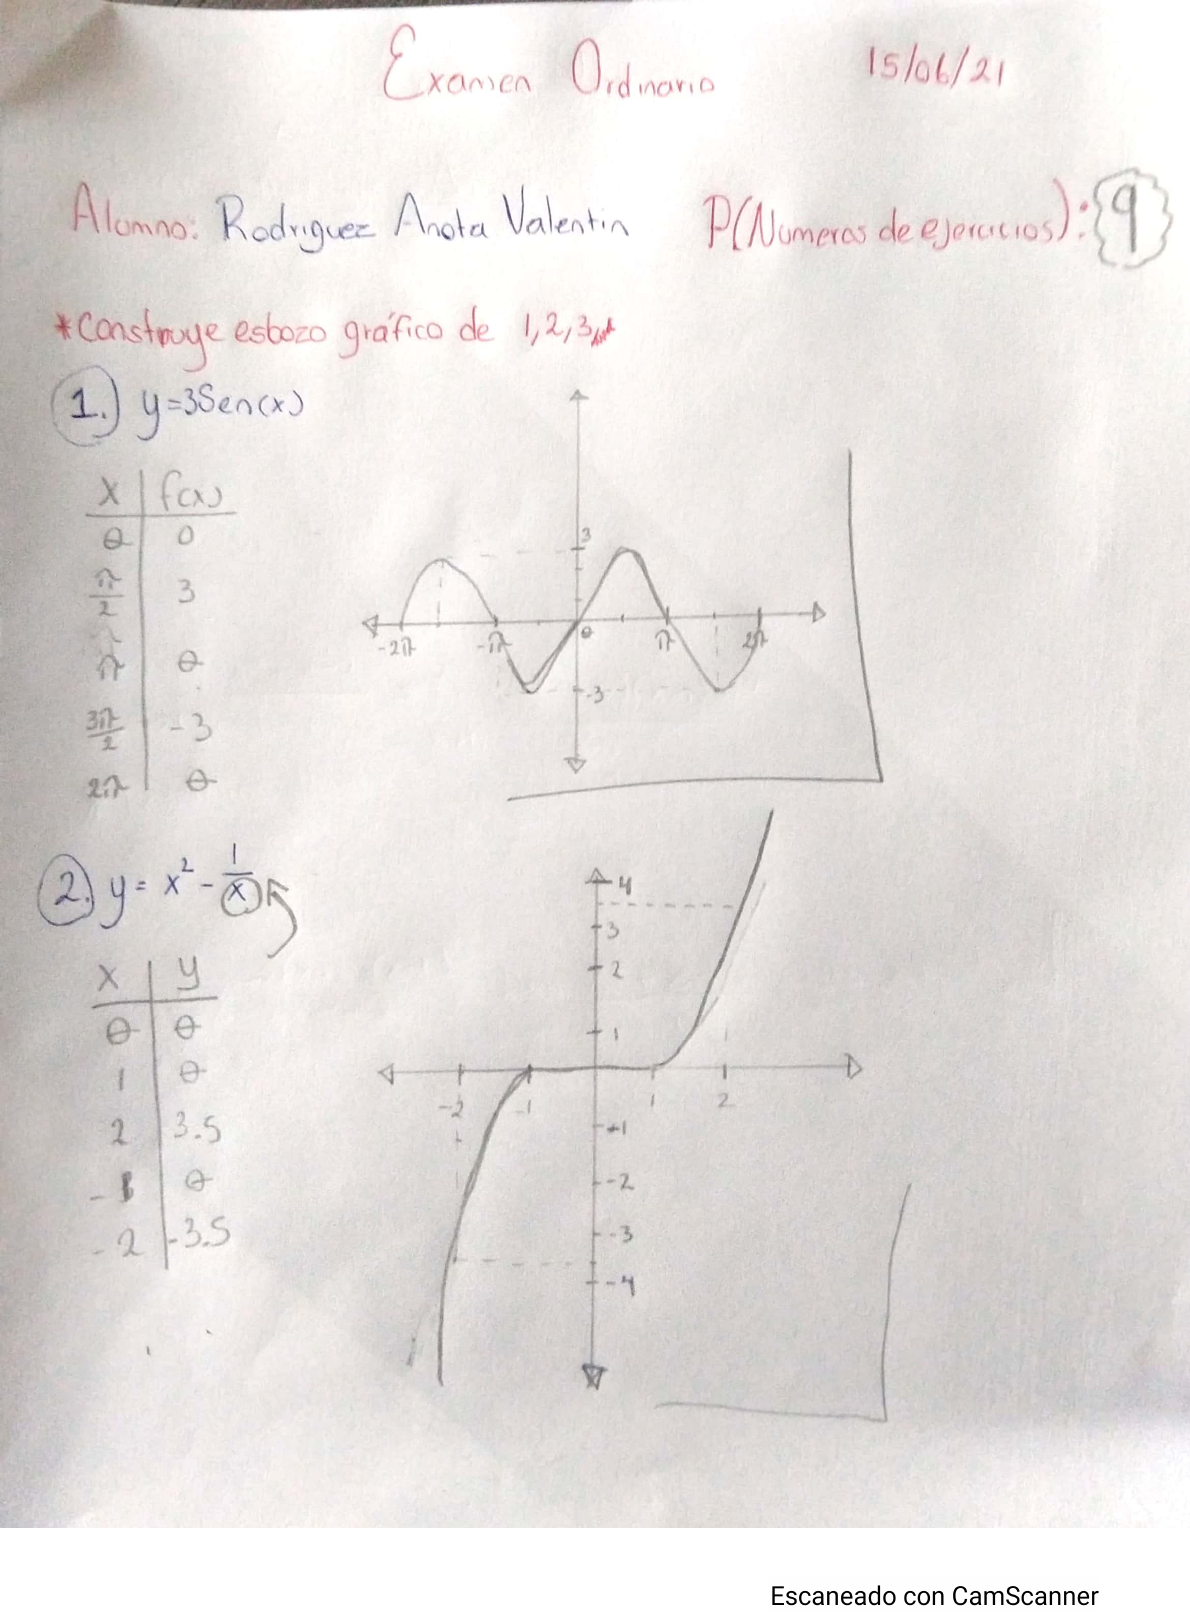 Examen Ordinario 15/06/21
Alumno: Rodriguez Anota Valentin P(Numeros de ejercicios): 9
*Construye esbozo gráfico de 1, 2, 3
1. y=3Sen(x)
x f(x)
0 0
π/2 3
π 0
3π/2 -3
2π 0
3
-2π -π 0 π 2π
-3
2. y = x² - 1/x
x y
0 0
1 0
2 3.5
-1 0
-2 -3.5
4
3
2
1
-2 -1 1 2
-1
-2
-3
-4
Escaneado con CamScanner